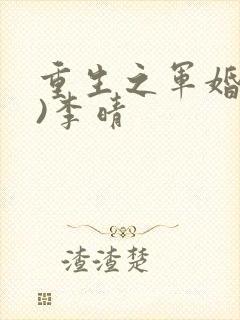 重生之军婚
)李晴
渣渣楚